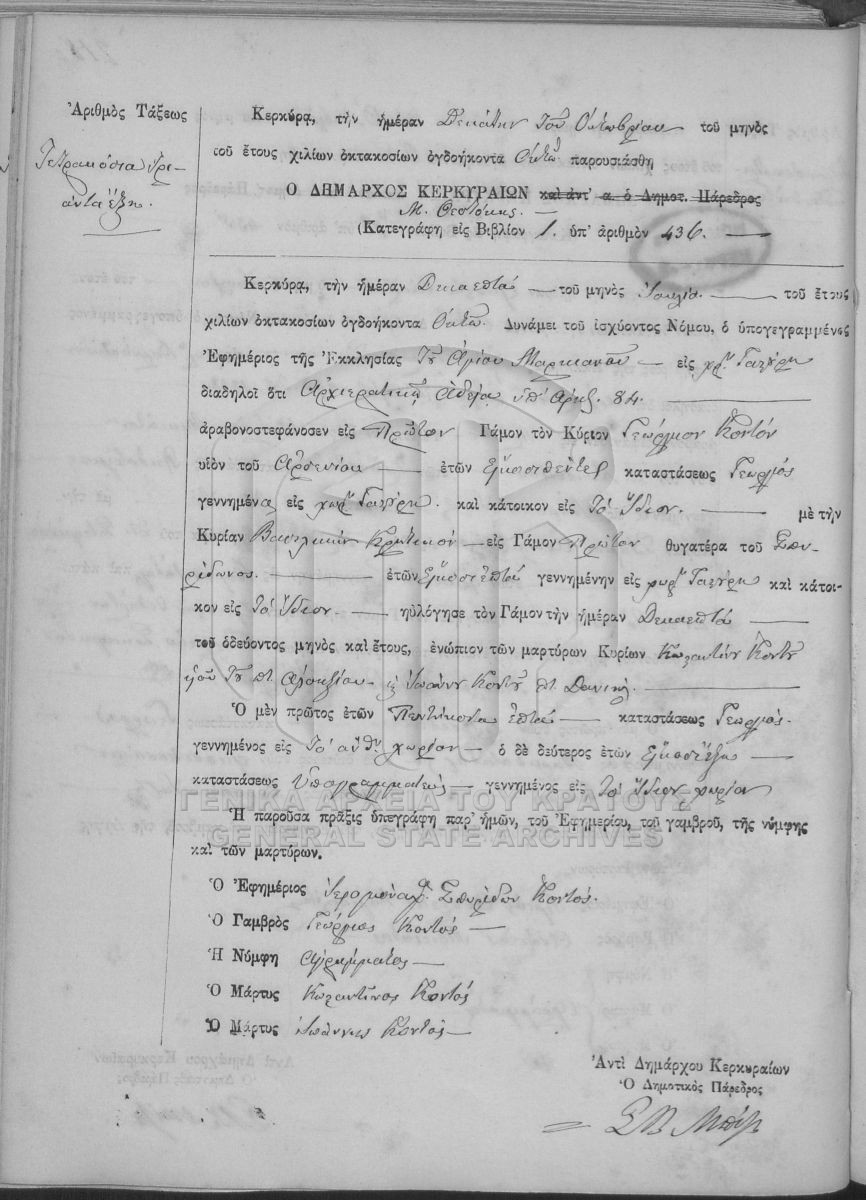 Ἀριθμὸς Τάξεως
Τετρακόσια τρι-
άντα ἕξη.
Κερκύρα, τὴν ἡμέραν Δεκάτην τοῦ Ὀκτωβρίου τοῦ μηνὸς
τοῦ ἔτους χιλίων ὀκτακοσίων ὀγδοήκοντα Ὀκτὼ παρουσιάσθη
Ο ΔΗΜΑΡΧΟΣ ΚΕΡΚΥΡΑΙΩΝ καὶ ἀντ' α. ὁ Δημοτ. Πάρεδρος
Μ. Θεοτόκης. —
(Κατεγράφη εἰς Βιβλίον 1. ὑπ' ἀριθμὸν 436. —
Κερκύρα, τὴν ἡμέραν Δεκαεπτὰ — τοῦ μηνὸς Ἰουλίου — τοῦ ἔτους
χιλίων ὀκτακοσίων ὀγδοήκοντα Ὀκτώ. Δυνάμει τοῦ ἰσχύοντος Νόμου, ὁ ὑπογεγραμμένος
Ἐφημέριος τῆς Ἐκκλησίας Τοῦ Ἁγίου Μαρκιανοῦ — εἰς χωρ. Γαζύρη
διαδηλοῖ ὅτι Ἀρχιερατικῇ Ἀδείᾳ ὑπ' ἀριθ. 84. —
ἀραβονοστεφάνοσεν εἰς Πρῶτον Γάμον τὸν Κύριον Γεώργιον Κοντὸν
υἱὸν τοῦ Ἀρσενίου — ἐτῶν Εἴκοσι πέντε καταστάσεως Γεωργὸς
γεννημένο εἰς χωρ. Γαζύρη καὶ κάτοικον εἰς Τὸ Ἴδιον. — μὲ τὴν
Κυρίαν Βασιλικὴν Κρητικοῦ — εἰς Γάμον Πρῶτον θυγατέρα τοῦ Σπυ-
ρίδωνος. — ἐτῶν Εἴκοσι ἑπτὰ γεννημένην εἰς χωρ. Γαζύρη καὶ κάτοι-
κον εἰς Τὸ Ἴδιον. — ηὐλόγησε τὸν Γάμον τὴν ἡμέραν Δεκαεπτὰ —
τοῦ ὁδεύοντος μηνὸς καὶ ἔτους, ἐνώπιον τῶν μαρτύρων Κυρίων Κωνσταντίνου Κοντοῦ
τοῦ ποτ. — Ἰωάννου Κοντοῦ ποτ. Δανιήλ. —
Ὁ μὲν πρῶτος ἐτῶν Πεντήκοντα ἑπτὰ — καταστάσεως Γεωργός.
γεννημένος εἰς Τὸ αὐτὸ χωρίον — ὁ δὲ δεύτερος ἐτῶν Εἴκοσι ἕξη —
καταστάσεως Ὑπογραμματεύς — γεννημένος εἰς Τὸ Ἴδιον χωρίον
ΓΕΝΙΚΑ ΑΡΧΕΙΑ ΤΟΥ ΚΡΑΤΟΥΣ
GENERAL STATE ARCHIVES
Ἡ παροῦσα πρᾶξις ὑπεγράφη παρ' ἡμῶν, τοῦ Ἐφημερίου, τοῦ γαμβροῦ, τῆς νύμφης
καὶ τῶν μαρτύρων.
Ὁ Ἐφημέριος Ἱερομόναχ. Σπυρίδων Κοντός.
Ὁ Γαμβρὸς Γεώργιος Κοντός —
Ἡ Νύμφη Ἀγράμματος —
Ὁ Μάρτυς Κωνσταντῖνος Κοντός
Ὁ Μάρτυς Ἰωάννης Κοντός —
Ἀντὶ Δημάρχου Κερκυραίων
Ὁ Δημοτικὸς Πάρεδρος